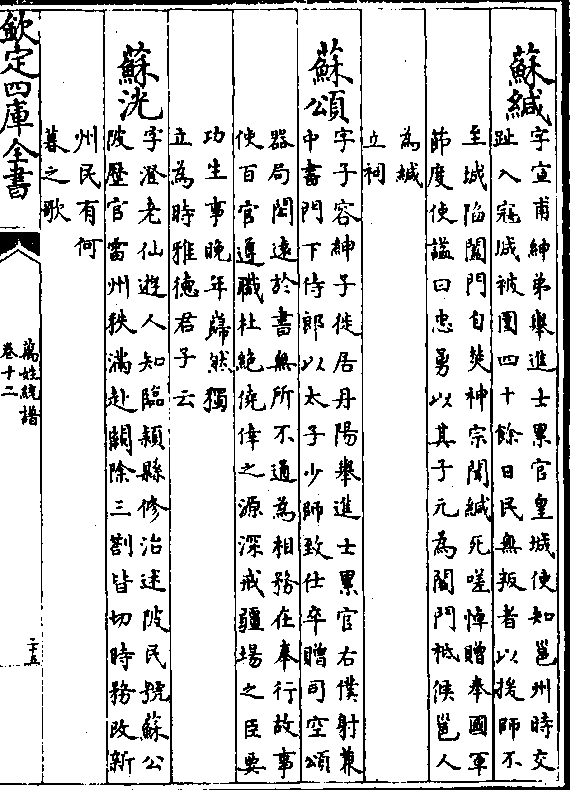 蘇緘
字宣甫紳弟舉進士累官皇城使知邕州時交
趾入寇城被圍四十餘日民無叛者以援師不
至城陷闔門自焚神宗聞緘死嗟悼贈奉國軍
節度使諡曰忠勇以其子元為閤門祗候邕人
為緘
立祠
蘇頌
字子容紳子徙居丹陽舉進士累官右僕射兼
中書門下侍郎以太子少師致仕卒贈司空頌
器局閎遠於書無所不通為相務在奉行故事
使百官遵職杜絶僥倖之源深戒疆場之臣要
功生事晚年巋然獨
立為時雅德君子云
蘇洸
字澄老仙遊人知臨頴縣修治迷陂民號蘇公
陂歴官雷州秩滿赴闕除三劄皆切時務改新
州民有何
暮之歌
欽定四庫全書
萬姓統譜
卷十二
二十五